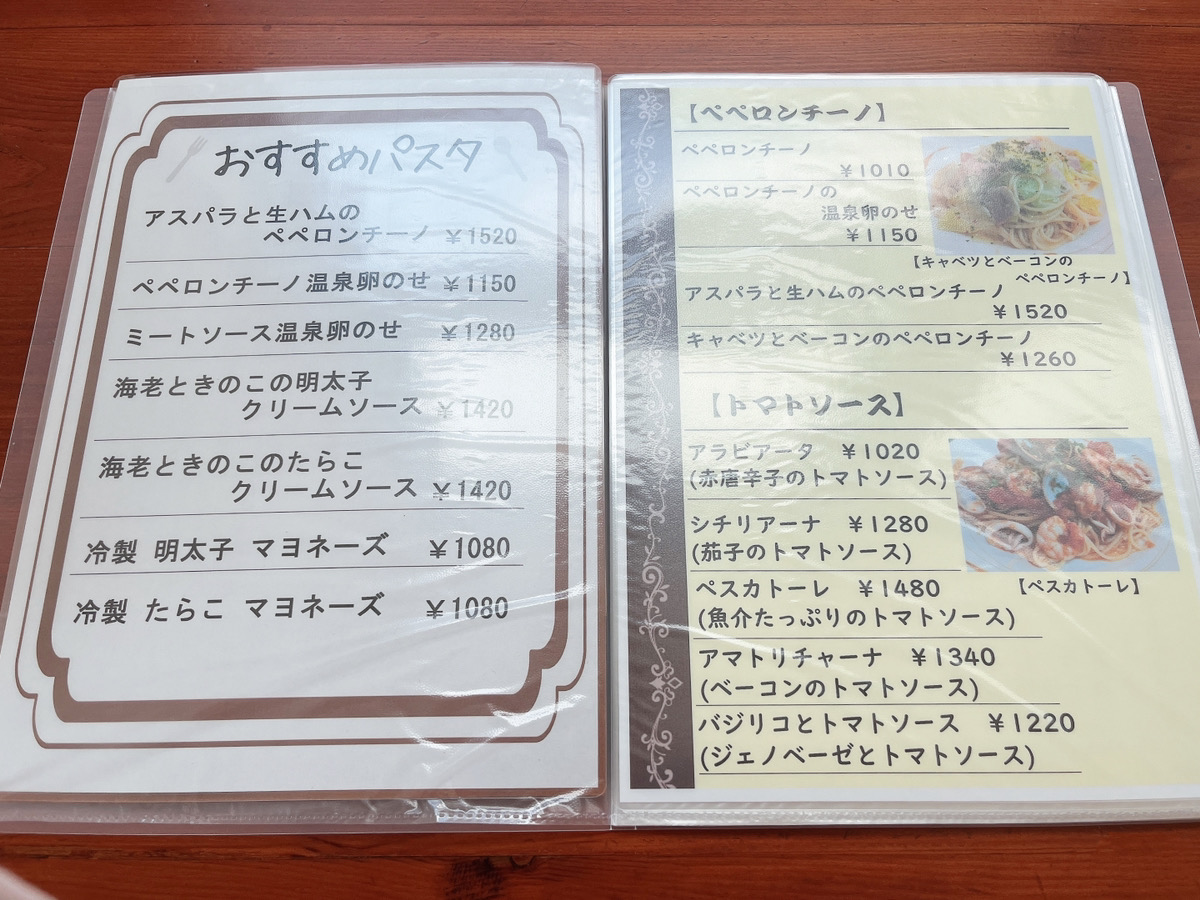 おすすめパスタ
アスパラと生ハムの
ペペロンチーノ ￥1520
ペペロンチーノ温泉卵のせ ￥1150
ミートソース温泉卵のせ ￥1280
海老ときのこの明太子
クリームソース ￥1420
海老ときのこのたらこ
クリームソース ￥1420
冷製 明太子 マヨネーズ ￥1080
冷製 たらこ マヨネーズ ￥1080
【ペペロンチーノ】
ペペロンチーノ
￥1010
ペペロンチーノの
温泉卵のせ
￥1150
【キャベツとベーコンの
ペペロンチーノ】
アスパラと生ハムのペペロンチーノ
￥1520
キャベツとベーコンのペペロンチーノ
￥1260
【トマトソース】
アラビアータ ￥1020
(赤唐辛子のトマトソース)
シチリアーナ ￥1280
(茄子のトマトソース)
ペスカトーレ ￥1480
【ペスカトーレ】
(魚介たっぷりのトマトソース)
アマトリチャーナ ￥1340
(ベーコンのトマトソース)
バジリコとトマトソース ￥1220
(ジェノベーゼとトマトソース)